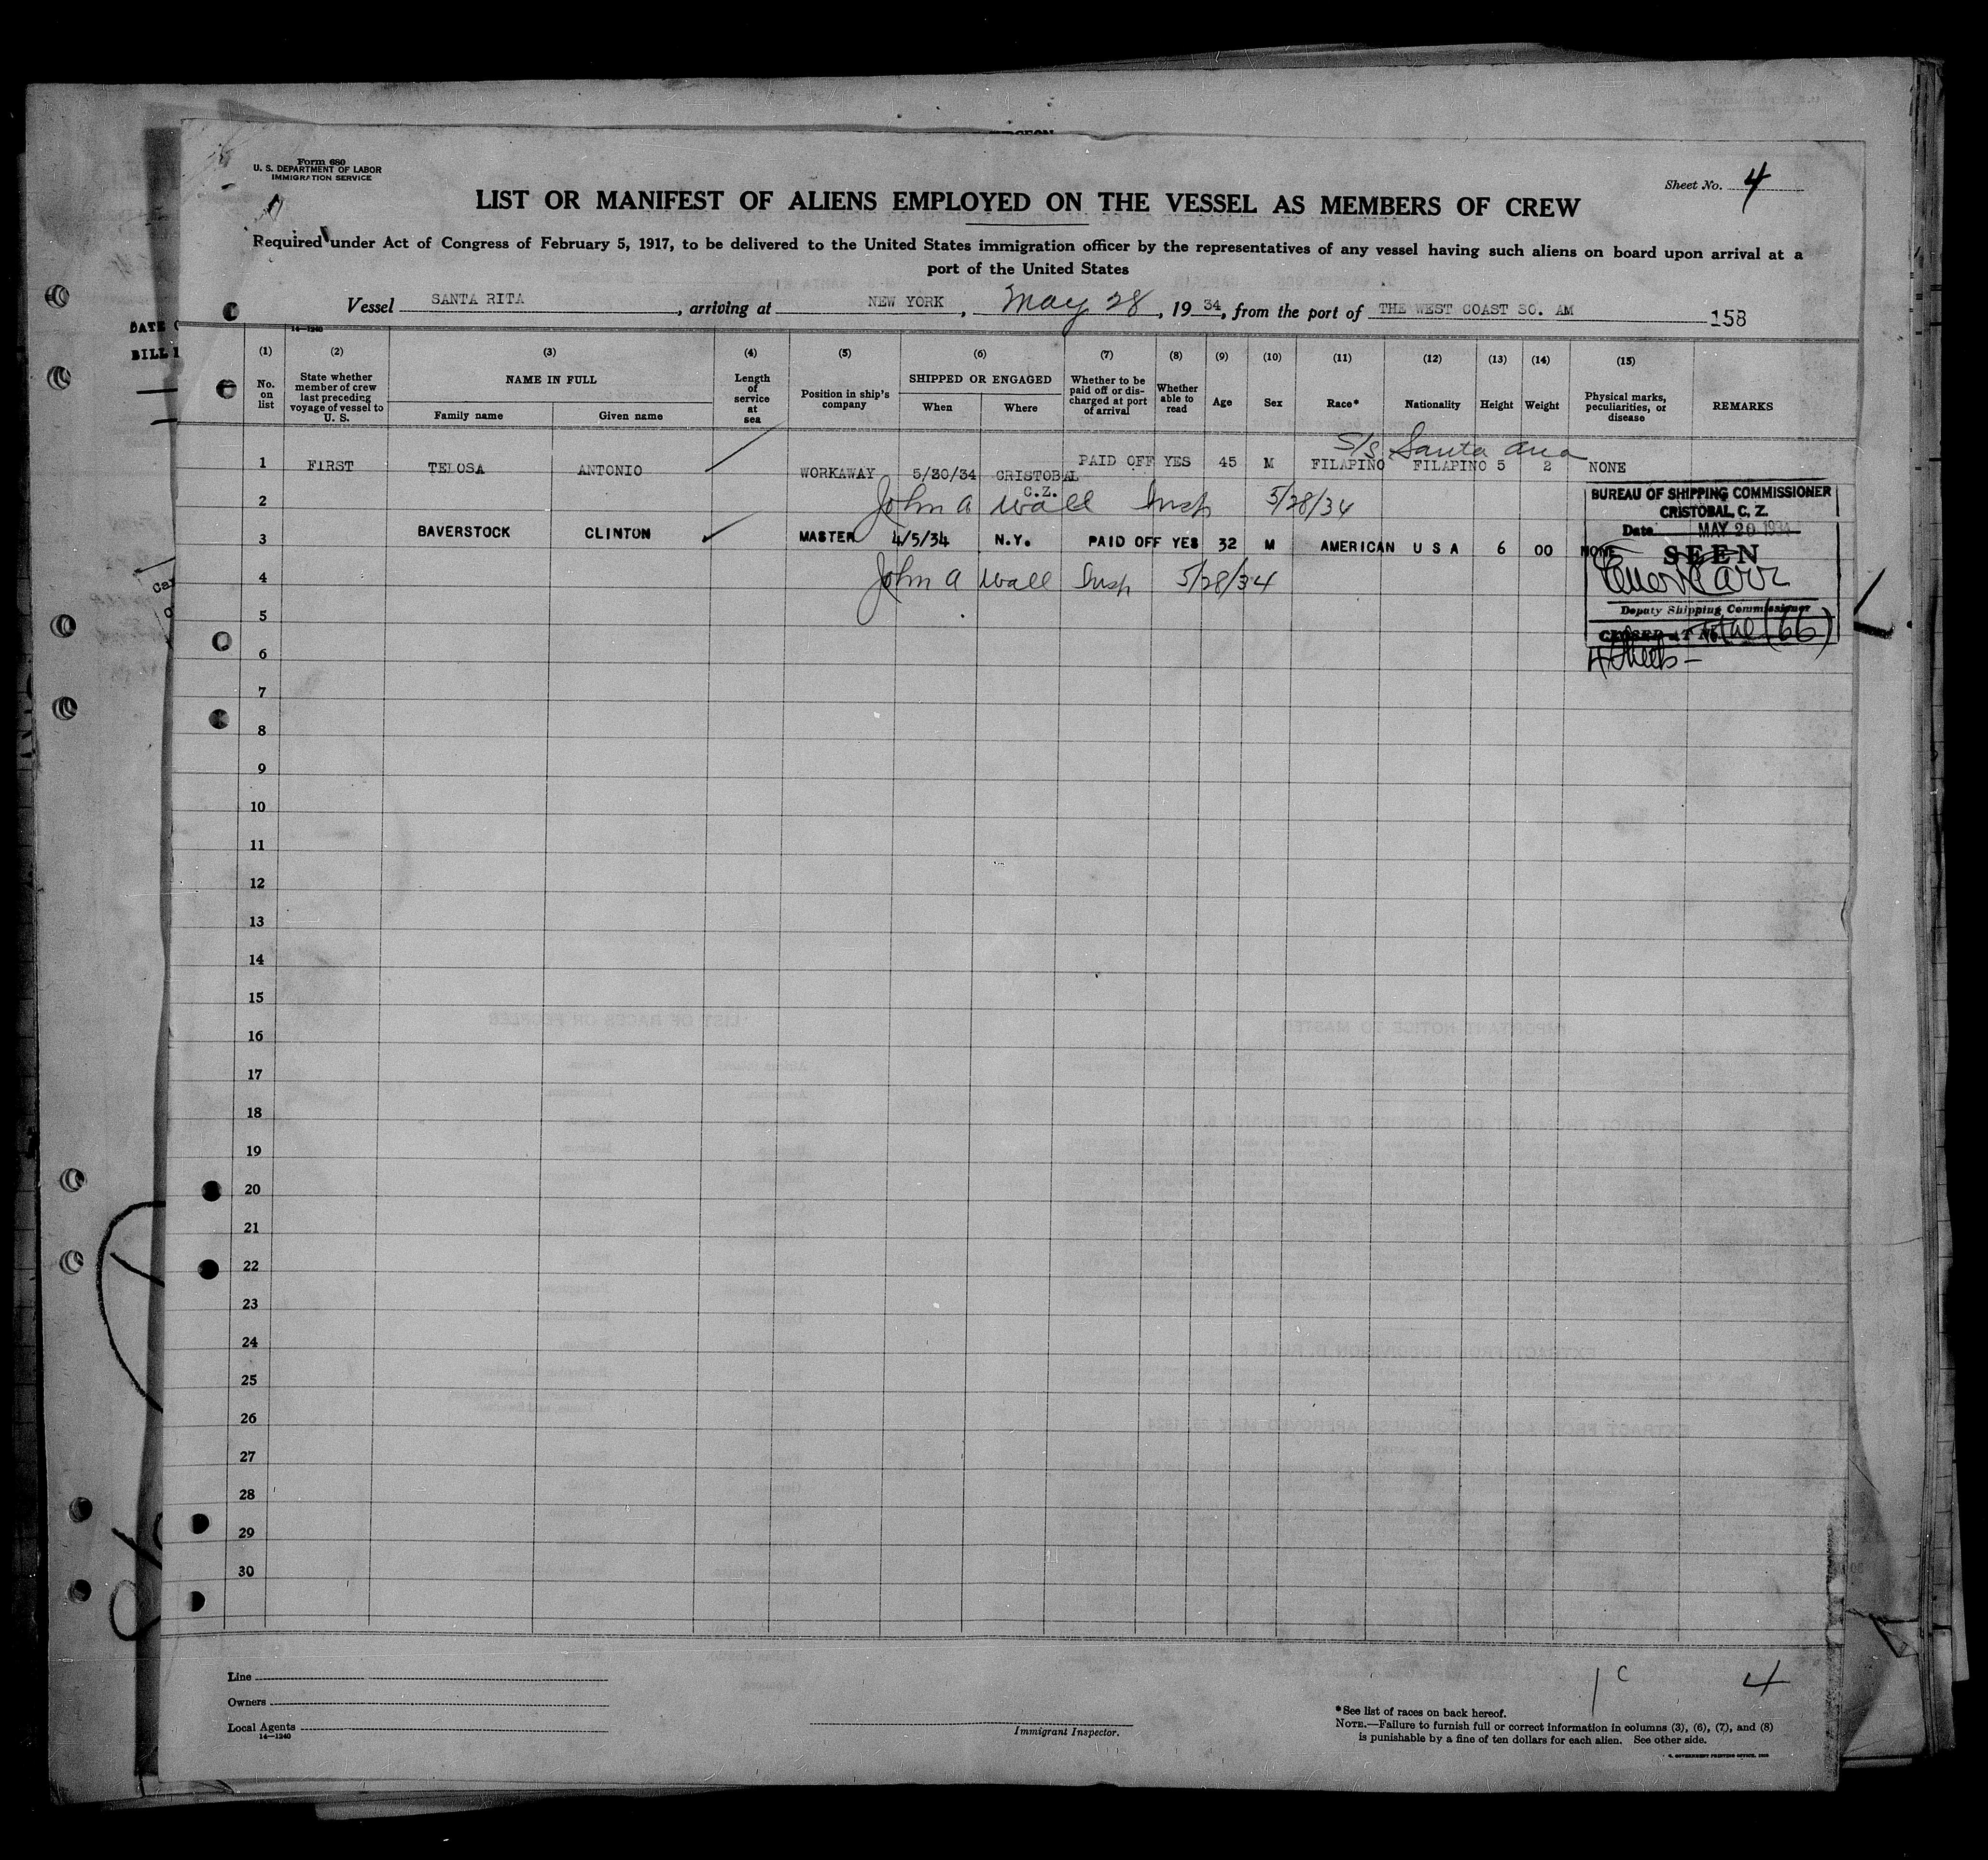 Form 680
U. S. DEPARTMENT OF LABOR
IMMIGRATION SERVICE
Sheet No. 4
LIST OR MANIFEST OF ALIENS EMPLOYED ON THE VESSEL AS MEMBERS OF CREW
Required under Act of Congress of February 5, 1917, to be delivered to the United States immigration officer by the representatives of any vessel having such aliens on board upon arrival at a
port of the United States
Vessel SANTA RITA, arriving at NEW YORK, May 28, 1934, from the port of THE WEST COAST SO. AM
158
14—1240
DATE
BILL
(1) (2) (3) (4) (5) (6) (7) (8) (9) (10) (11) (12) (13) (14) (15)
No. on list
State whether member of crew last preceding voyage of vessel to U. S.
NAME IN FULL
Family name
Given name
Length of service at sea
Position in ship's company
SHIPPED OR ENGAGED
When
Where
Whether to be paid off or discharged at port of arrival
Whether able to read
Age
Sex
Race*
Nationality
Height
Weight
Physical marks, peculiarities, or disease
REMARKS
S/S Santa Ana
1 FIRST TELOSA ANTONIO WORKAWAY 5/20/34 CRISTOBAL C.Z. PAID OFF YES 45 M FILAPINO FILAPINO 5 2 NONE
2 John A Wall Insp 5/28/34
3 BAVERSTOCK CLINTON MASTER 4/5/34 N.Y. PAID OFF YES 32 M AMERICAN U S A 6 00 NONE
4 John A Wall Insp 5/28/34
BUREAU OF SHIPPING COMMISSIONER
CRISTOBAL, C. Z.
Date MAY 20 1934
SEEN
Deputy Shipping Commissioner
CLOSED AT No. Total (66)
4 Sheets -
5
6
7
8
9
10
11
12
13
14
15
16
17
18
19
20
21
22
23
24
25
26
27
28
29
30
Line
Owners
Local Agents
14—1240
Immigrant Inspector.
1 c 4
*See list of races on back hereof.
NOTE.—Failure to furnish full or correct information in columns (3), (6), (7), and (8)
is punishable by a fine of ten dollars for each alien. See other side.
GOVERNMENT PRINTING OFFICE